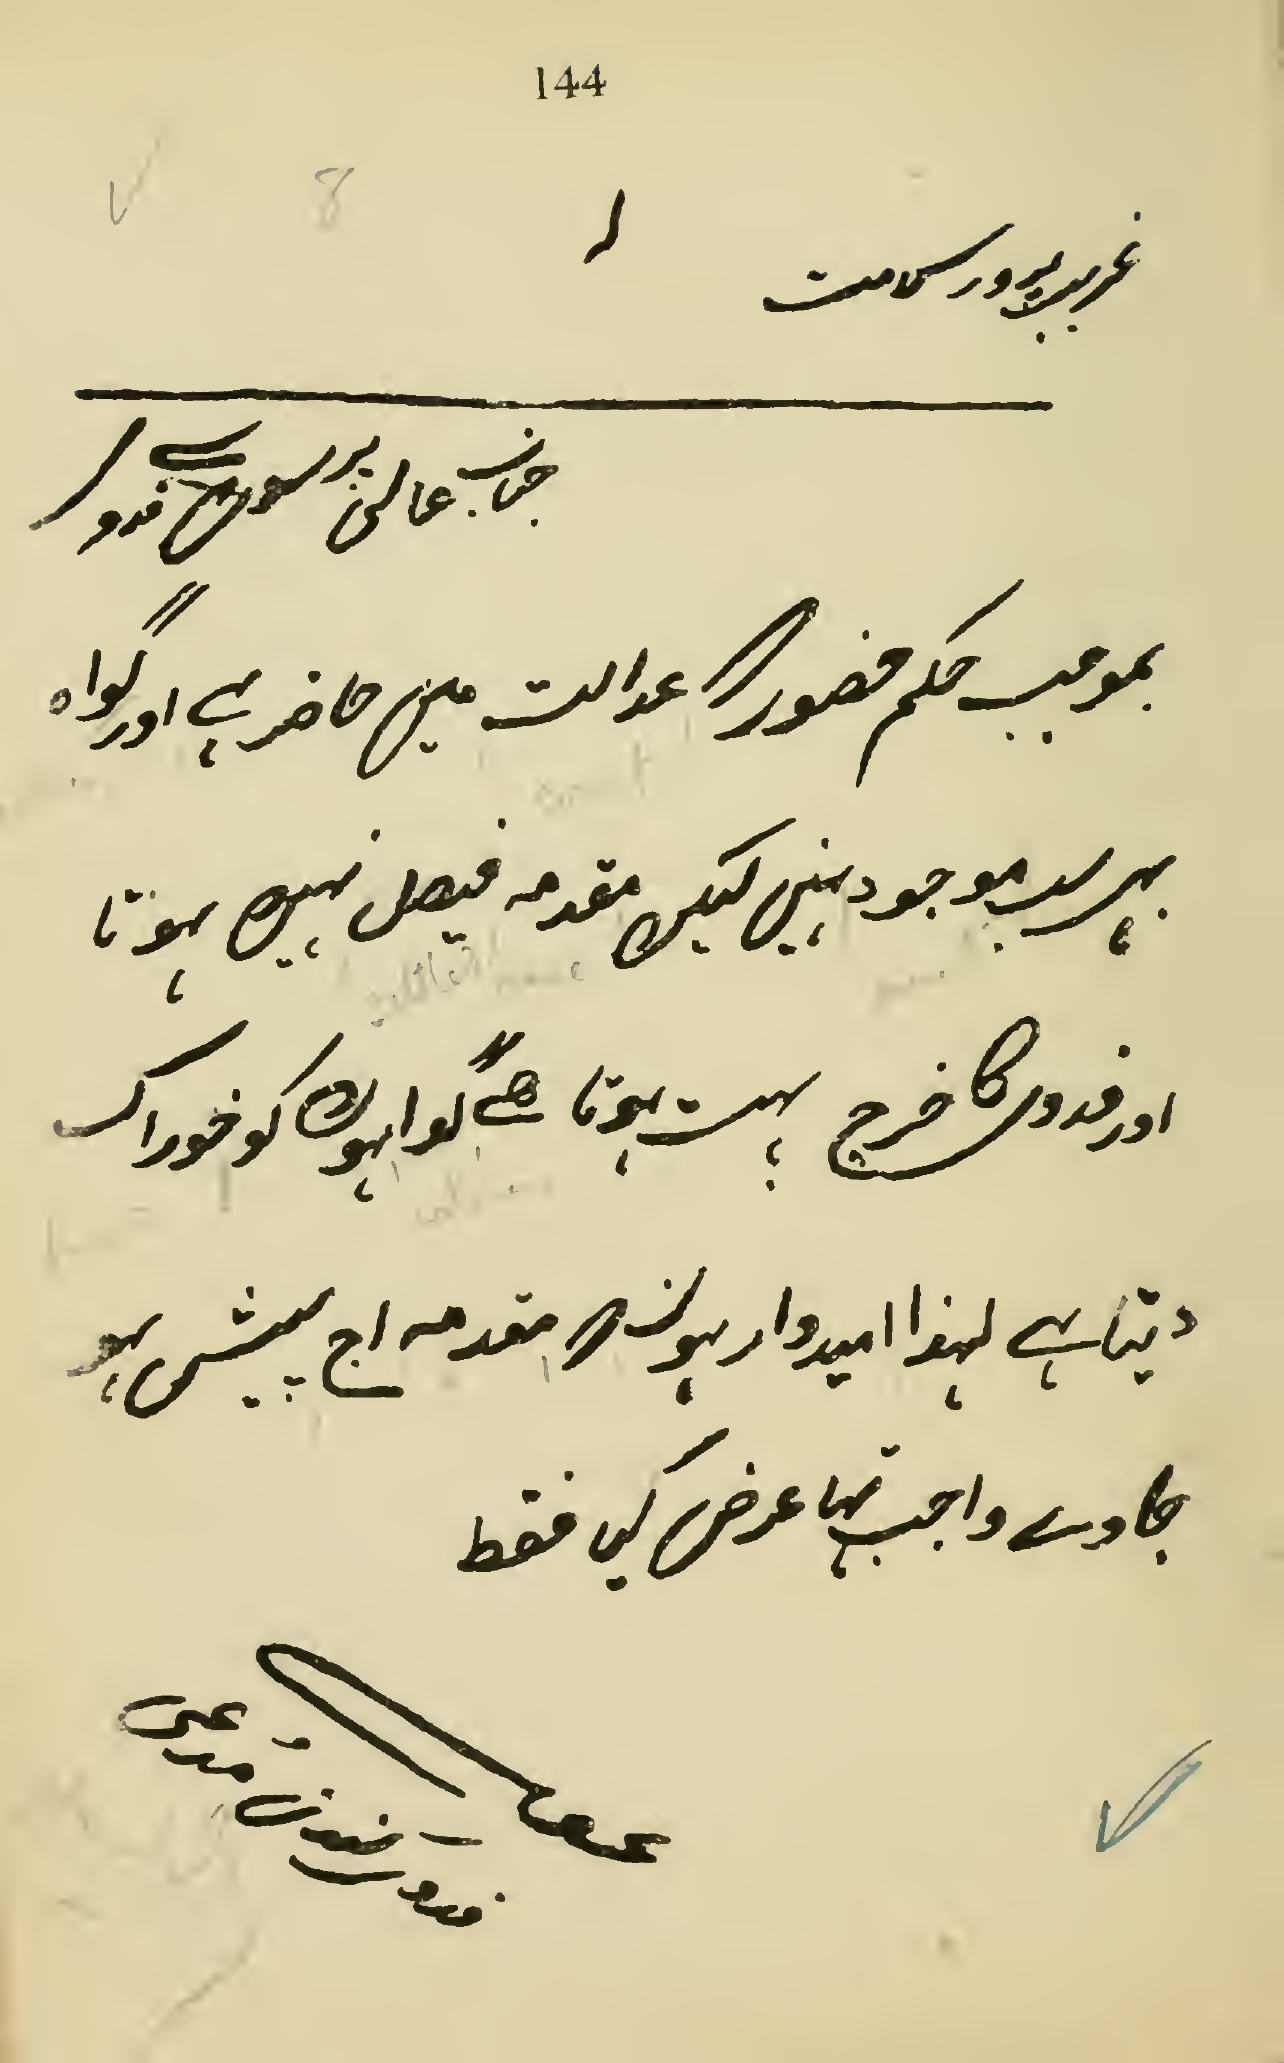 144
غریب پرور سلامت
جناب عالی پرسوں سے فدوی
بموجب حکم حضور عدالت میں حاضر ہے اور گواہ
بہی سب موجود ہیں لیکن مقدمہ فیصل نہیں ہوتا
اور فدوی کا خرچ بہت ہوتا ہے گواہوں کو خوراک
دیتا ہے لہذا امیدوار ہوں کہ مقدمہ اج پیش ہو
جاوے واجب تہا عرض کیا فقط
عرضے
فدوی مدعی